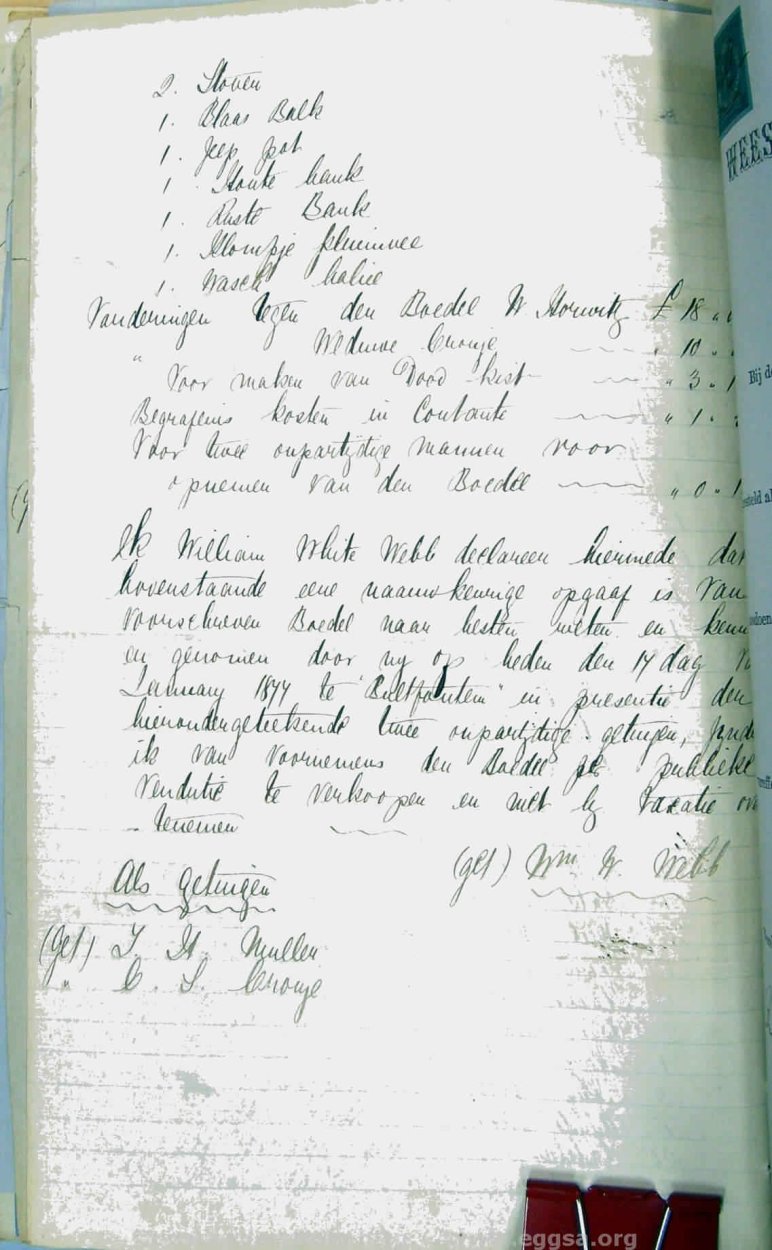 2. Stoven
1. Blaas Balk
1. Zeep pot
1. Houte bank
1. Ruste Bank
1. Klompje pluimvee
1. Wasch balie
Vorderingen tegen den Boedel W. Horwitz £ 18 "
" Weduwe Cronje " 10 "
Voor maken van Dood kist " 3 " 1
Begrafenis kosten in Contante " 1 "
Voor twee onpartijdige mannen voor
opnemen van den Boedel " 0 " 1
Ik William White Webb declareer hiermede dat
bovenstaande eene naauwkeurige opgaaf is van
voorschreven Boedel naar besten weten en
en genomen door my op heden den 17 dag
January 1877 te "Bultfontein" in presentie der
hierondergetekende twee onpartijdige getuigen, zynde
ik van voornemens den Boedel pr publieke
Vendutie te verkoopen en niet by Taxatie over
tenemen
(get) Wm W. Webb
Als getuigen
(Get) J. H. Muller
" C. S. Cronje
WEES
Bij de
esteld al
eggsa.org